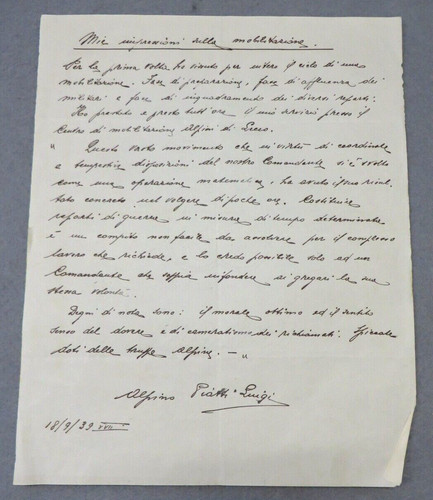 Mie impressioni sulla mobilitazione.
Per la prima volta ho vissuto per intero il ciclo di una
mobilitazione. Fase di preparazione, fase di affluenza dei
militari e fase di inquadramento dei diversi reparti.
Ho prodotto e presto tutt'ora il mio servizio presso il
Centro di mobilitazione Alpini di
" Questo vasto movimento che in virtù di coordinate
e tempestive disposizioni del nostro Comandante si è svolto
come una operazione matematica, ha avuto il suo risul-
tato concreto nel volgere di poche ore. Costituire
reparti di guerra in misura di tempo determinata
è un compito non facile da assolvere per il complesso
lavoro che richiede, e lo credo possibile solo ad un
Comandante che sappia infondere ai gregari la sua
stessa volontà.
Degni di nota sono: il morale ottimo ed il sentito
senso del dovere e di cameratismo dei richiamati. Speciale
doti delle truppe Alpine. — "
Alpino Piatti Luigi
18/9/39 XVII